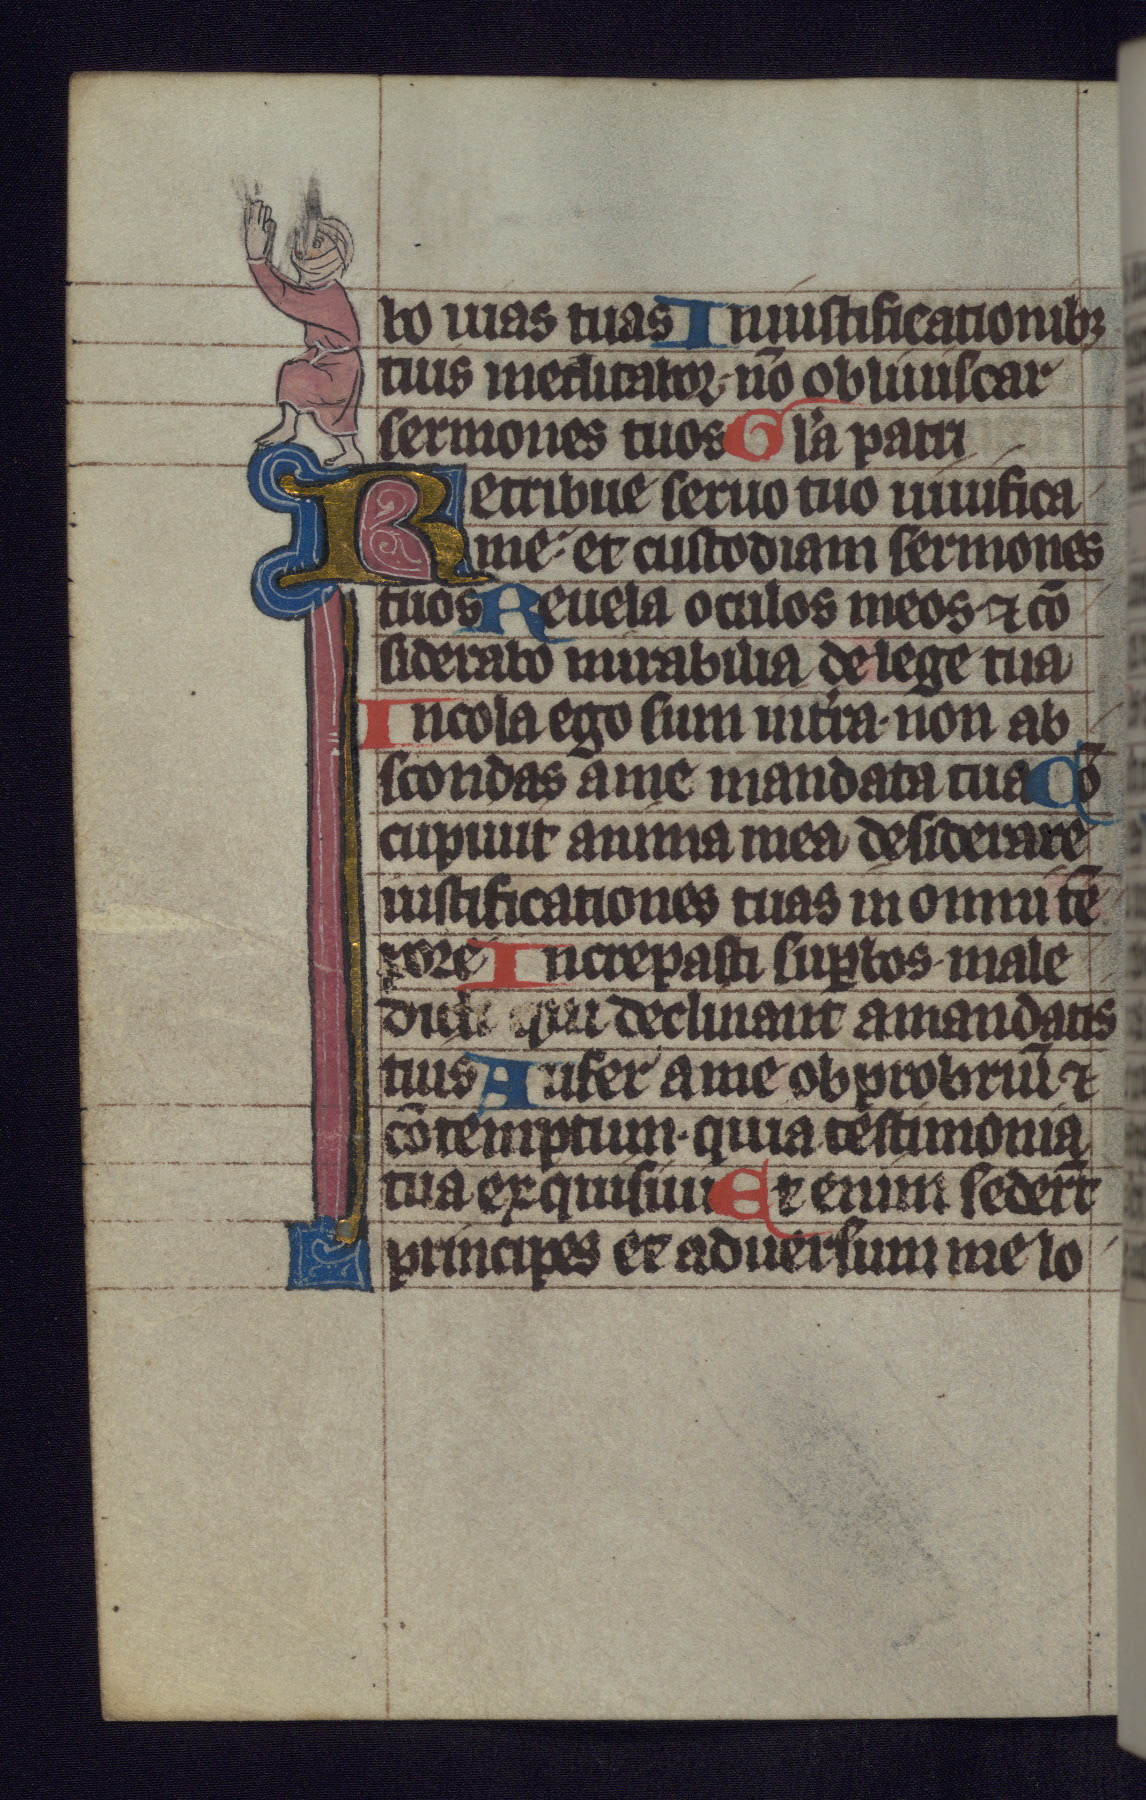 bo uias tuas In iustificationibꝫ
tuis meditabor· nō obliuiscar
sermones tuos Gl'a patri
Retribue seruo tuo uiuifica
me· et custodiam sermones
tuos Reuela oculos meos· ⁊ cō
siderabo mirabilia de lege tua
Incola ego sum in t'ra· non ab
scondas a me mandata tua Cō
cupiuit anima mea desiderare
iustificationes tuas in omni tē
pore Increpasti suꝑbos· male
dicti qui declinant a mandatis
tuis Aufer a me obprobriū ⁊
cōtemptum· quia testimonia
tua exquisiui Et enim seder̄t
principes et aduersum me lo